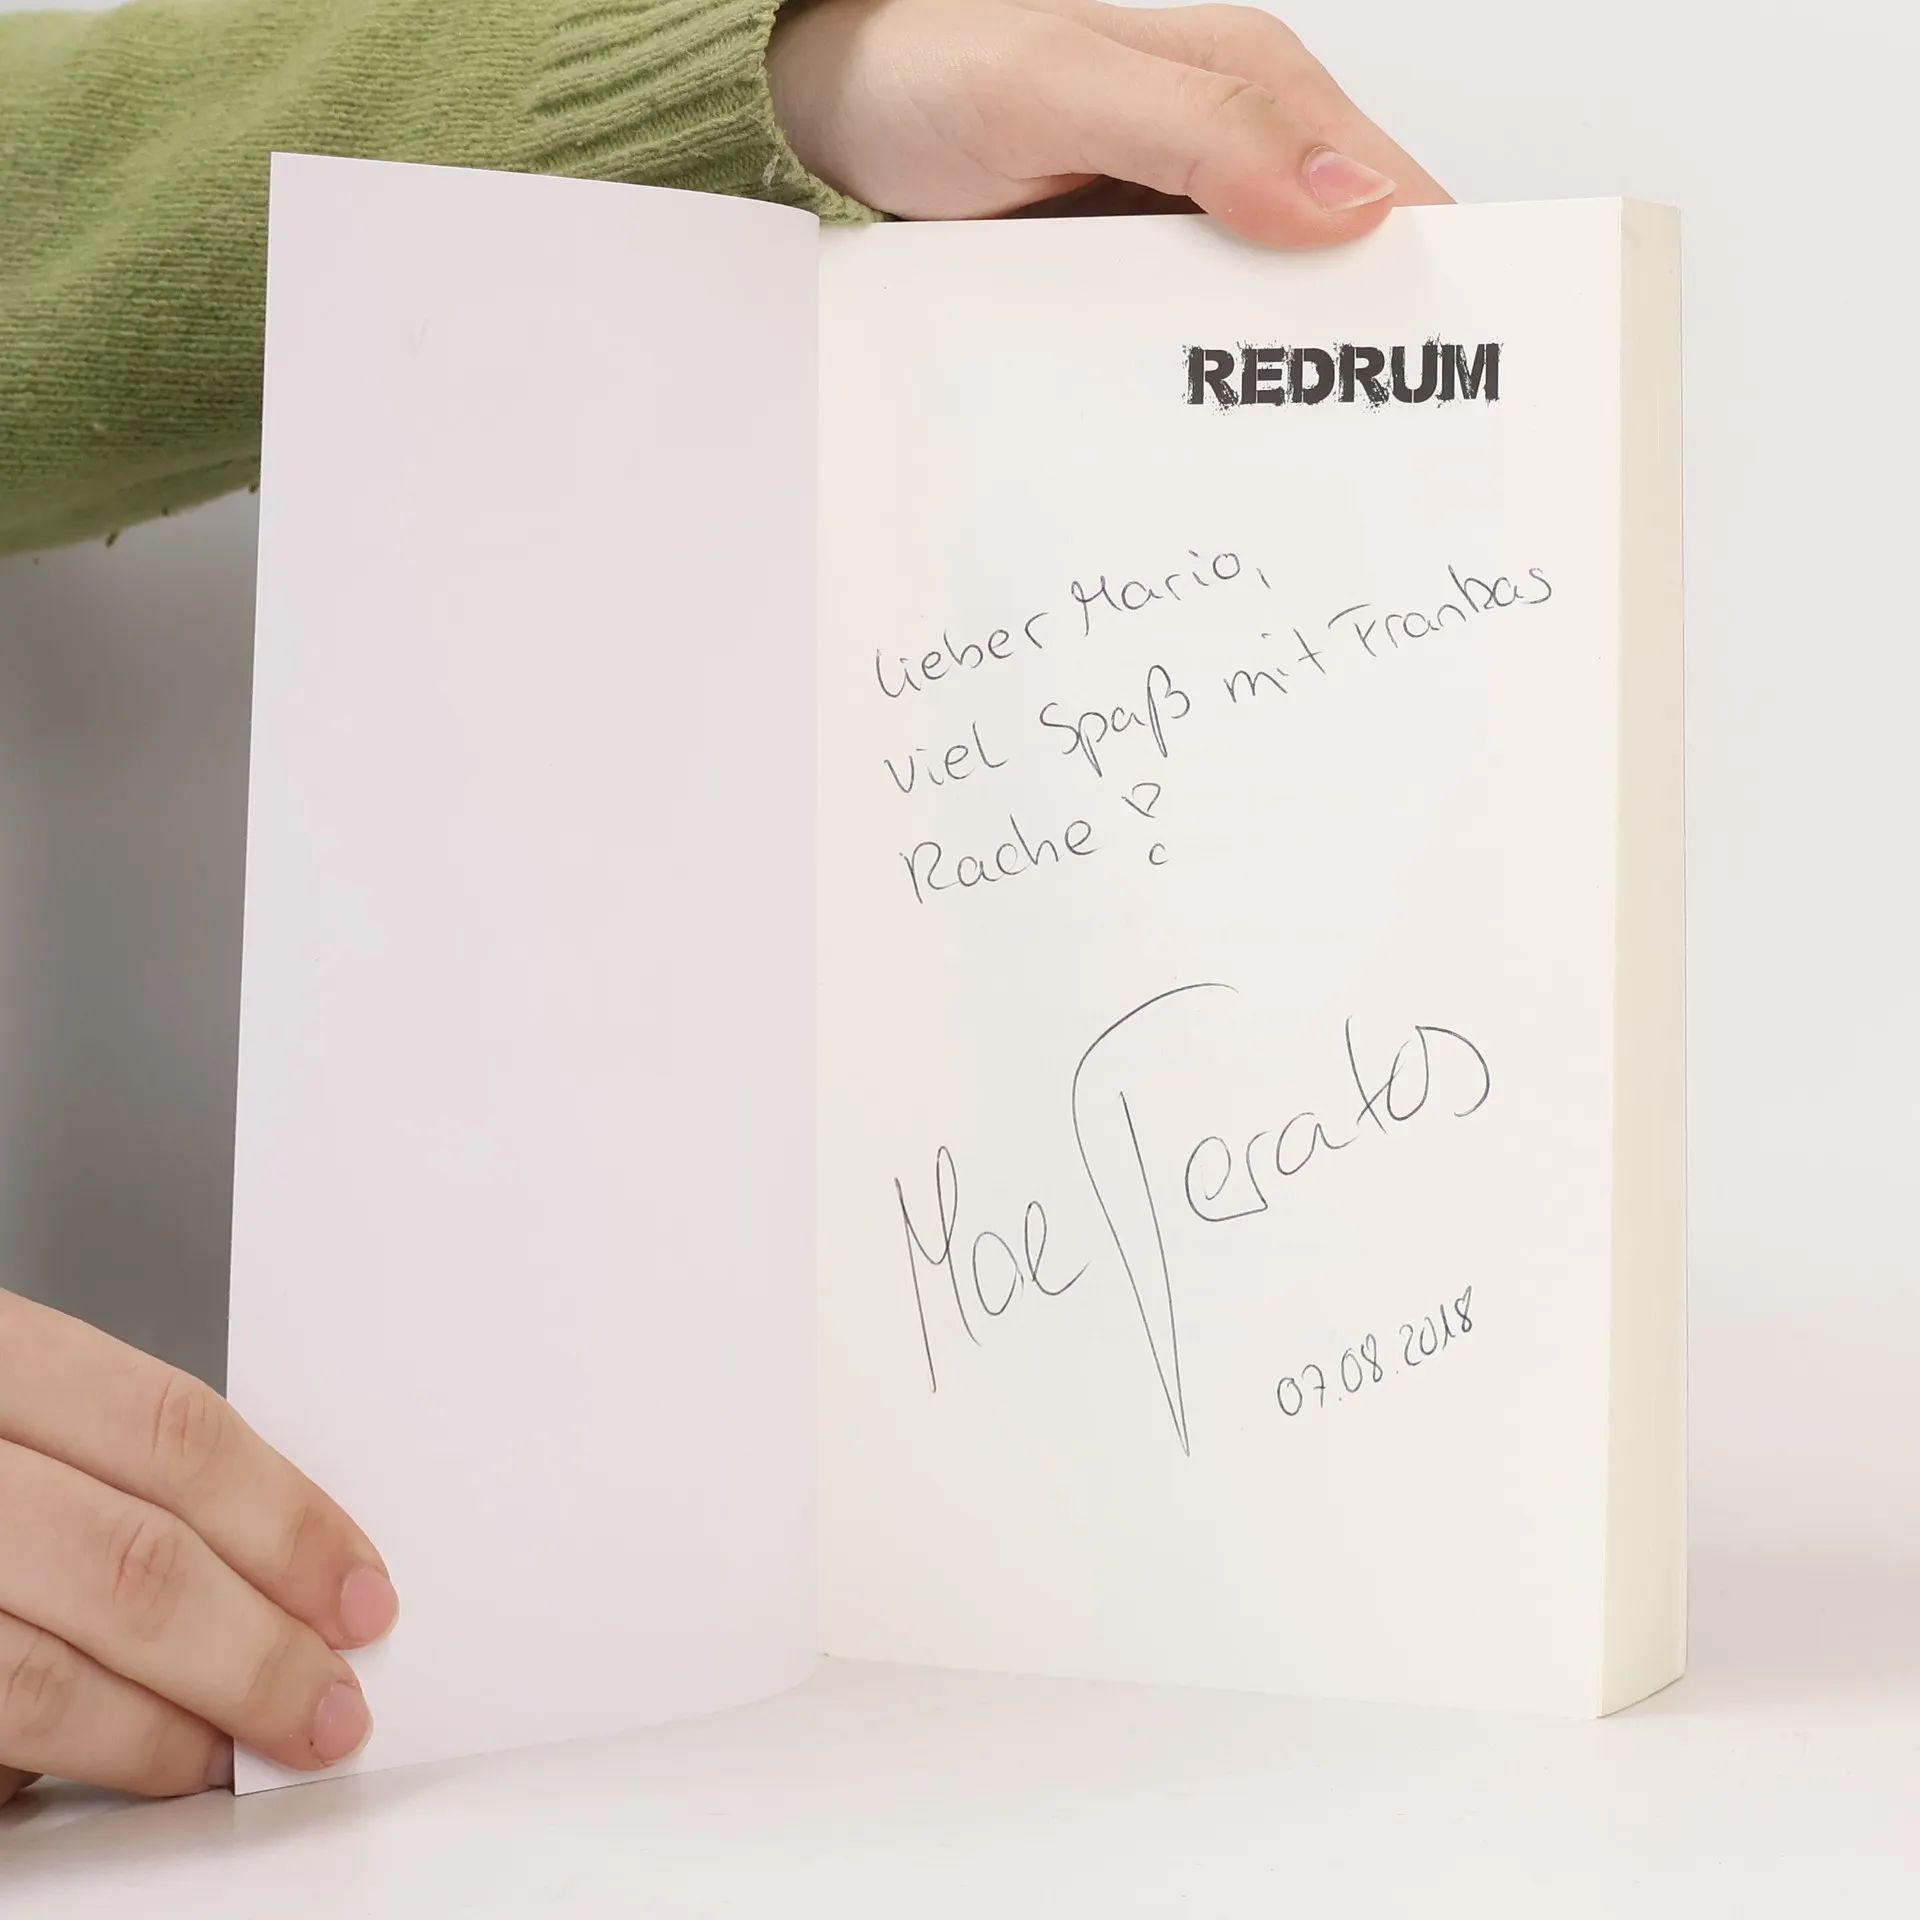 REDRUM
Lieber Mario,
viel Spaß mit Frankas
Rache!
Moe Teratos
07.08.2018